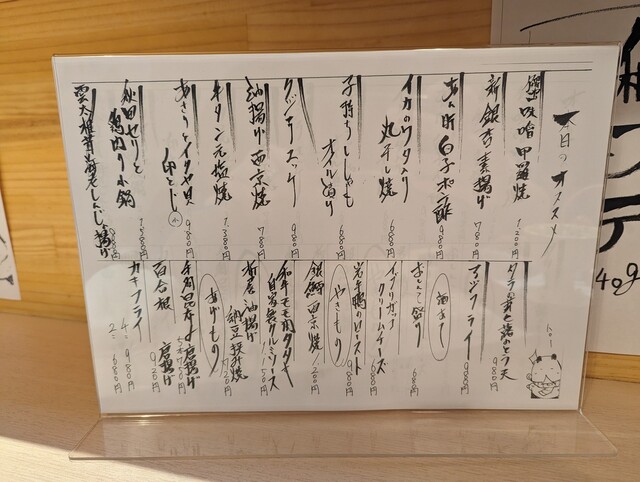 本日のオススメ
甲羅焼
1,200円
新銀杏素揚げ
780円
あん肝 白子ポン酢
980円
イカのワタ入り
丸干し焼
680円
子持ちししゃも
オイル漬け
680円
クジラユッケ
980円
油揚げ西京焼
780円
牛タン元塩焼
1,380円
あさりとイタヤ貝
卵とじ
980円
秋田セリと
鶏肉の小鍋
1,580円
雲太椎茸海老しんじょ揚げ
天
980円
アジフライ
980円
酒あて
おしんこ盛り
680
イブリガッコ
クリームチーズ
680円
岩手鴨のロースト
980円
やきもの
銀鱈西京焼
1,200円
和牛モモ肉タタキ
自家製クルミソース
栃尾油揚げ
納豆挟み焼
720円
あげもの
唐揚げ
百合根
唐揚げ
920円
カキフライ
4ヶ 980円
2ヶ 680円